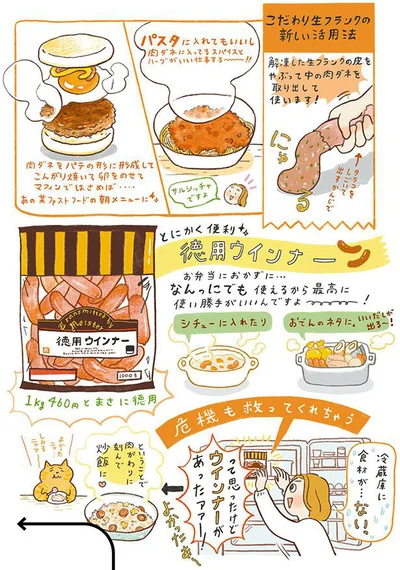 こだわり生フランクの
新しい活用法
解凍した生フランクの皮を
やぶって中の肉ダネを
取り出して
使います!
にゅ
る
タラコを
しごいて
出すかんじで
パスタに入れてもいいし
肉ダネに入ってるスパイスと
ハーブがいい仕事する〜〜〜!!
サルシッチャ
ですよ
肉ダネをパテの形に形成して
こんがり焼いて卵をのせて
マフィンではさめば‥‥
あの某ファストフードの朝メニューに
とにかく便利
徳用ウインナー
お弁当におかずに…
なんっにでも使えるから最高に
使い勝手がいいんですよ〜〜〜!
シチューに入れたり
おでんのネタに。いいだしが
出る〜!
Transmitted by
Meister
徳用ウインナー
1000g
1kg460円とまさに徳用
危機も救ってくれちゃう
冷蔵庫に
食材が…
ないっ
って思ったけど
ウインナーが
あったアァー!
よかったぁ〜
ということで
肉がわりに
刻んで
炒飯に♡